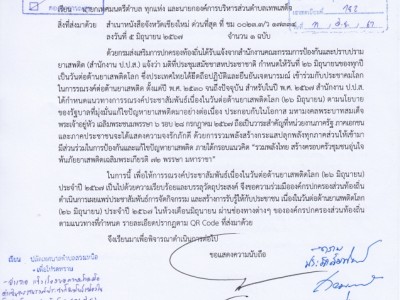 เรียน นายกเทศมนตรีตำบล ทุกแห่ง และนายกองค์การบริหารส่วนตำบลเทพเสด็จ
สิ่งที่ส่งมาด้วย สำเนาหนังสือจังหวัดเชียงใหม่ ด่วนที่สุด ที่ ชม ๐๐๒๓.๓/ว
ลงวันที่ ๕ มิถุนายน ๒๕๖๗ จำนวน ๑ ฉบับ
ด้วยกรมส่งเสริมการปกครองท้องถิ่นได้รับแจ้งจากสำนักงานคณะกรรมการป้องกันและปราบปราม
ยาเสพติด (สำนักงาน ป.ป.ส.) แจ้งว่า มติที่ประชุมสมัชชาสหประชาชาติ กำหนดให้วันที่ ๒๖ มิถุนายนของทุกปี
เป็นวันต่อต้านยาเสพติดโลก ซึ่งประเทศไทยได้ยึดถือปฏิบัติและยืนยันเจตนารมณ์ เข้าร่วมกับประชาคมโลก
ในการรณรงค์ต่อต้านยาเสพติด ตั้งแต่ปี พ.ศ. ๒๕๓๐ จนถึงปัจจุบัน สำหรับในปี พ.ศ. ๒๕๖๗ สำนักงาน ป.ป.ส. ได้
กำหนดแนวทางการรณรงค์ประชาสัมพันธ์เนื่องในวันต่อต้านยาเสพติดโลก (๒๖ มิถุนายน) ตามนโยบาย
ของรัฐบาลที่มุ่งมั่นแก้ไขปัญหายาเสพติดมาอย่างต่อเนื่อง ประกอบกับในโอกาส มหามงคลพระบาทสมเด็จ
พระเจ้าอยู่หัว เฉลิมพระชนมพรรษา ๖ รอบ ๒๘ กรกฎาคม ๒๕๖๗ ถือเป็นวาระสำคัญที่หน่วยงานภาครัฐ ภาคเอกชน
และภาคประชาชนจะได้แสดงความจงรักภักดี ด้วยการรวมพลังสร้างกระแสปลุกพลังทุกภาคส่วนให้เข้ามา
มีส่วนร่วมในการป้องกันและแก้ไขปัญหายาเสพติด ภายใต้กรอบแนวคิด "รวมพลังไทย สร้างครอบครัวชุมชนอุ่นใจ
พ้นภัยยาเสพติดเฉลิมพระเกียรติ ๗๒ พรรษา มหาราชา"
ในการนี้ เพื่อให้การรณรงค์ประชาสัมพันธ์เนื่องในวันต่อต้านยาเสพติดโลก (๒๖ มิถุนายน)
ประจำปี ๒๕๖๗ เป็นไปด้วยความเรียบร้อยและบรรลุวัตถุประสงค์ จึงขอความร่วมมือองค์กรปกครองส่วนท้องถิ่น
ดำเนินการเผยแพร่ประชาสัมพันธ์การจัดกิจกรรม และสร้างการรับรู้ให้กับประชาชน เนื่องในวันต่อต้านยาเสพติดโลก
(๒๖ มิถุนายน) ประจำปี ๒๕๖๗ ในห้วงเดือนมิถุนายน ผ่านช่องทางต่างๆ ขององค์กรปกครองส่วนท้องถิ่น
ตามแนวทางที่กำหนด รายละเอียดปรากฏตาม QR Code ที่ส่งมาด้วย
จึงเรียนมาเพื่อพิจารณาดำเนินการต่อไป
ขอแสดงความนับถือ
เรียน